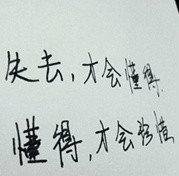 失去，才会懂得，
懂得，才会珍惜，